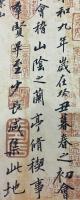 和九年歲在癸丑暮春之初會
會稽山陰之蘭亭脩稧事
羣賢畢至少長咸集此地